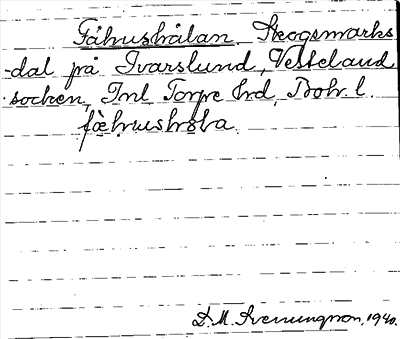 Fähushålan, Skogsmarks
-dal på Ivarslund, Vesteland
socken, Inl Torpe hrd, Boh. l.
fæhushɵla
D.M. Svenungsson, 1940.